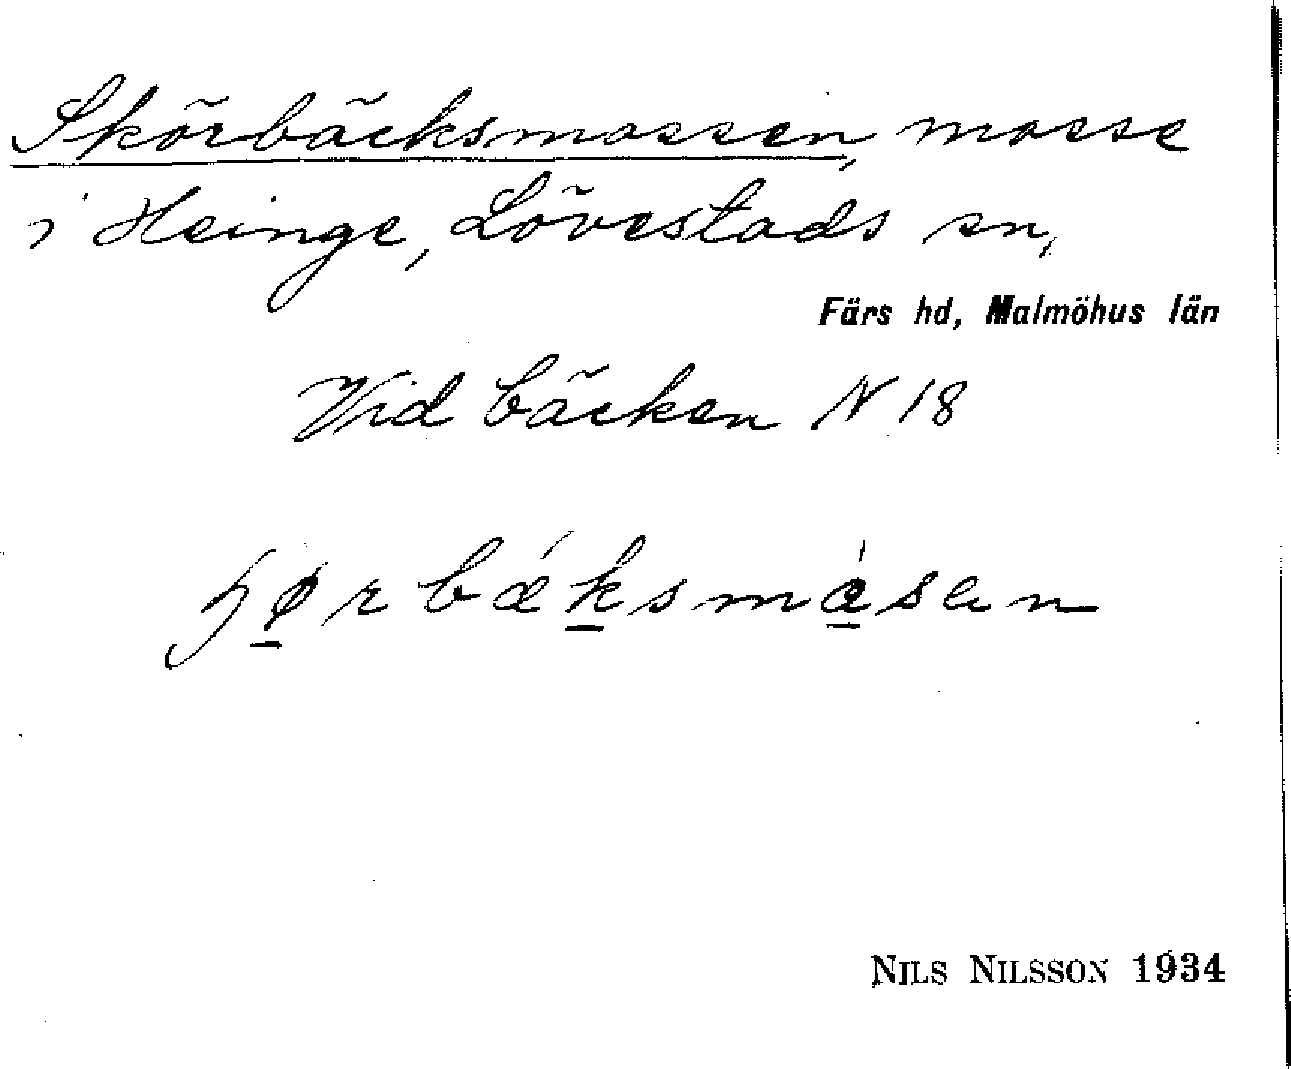 Skörbäcksmossen, mosse
i Heinge, Lövestads sn,
Färs hd, Malmöhus län
Vid bäcken N 18
NILS NILSSON 1934